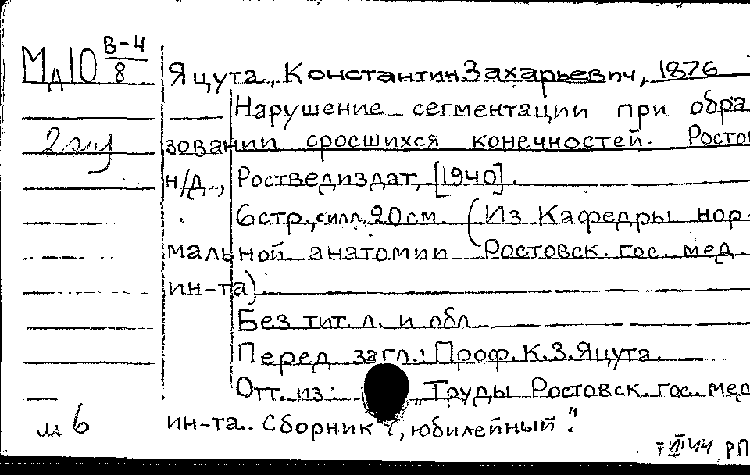 Мд10 В-4/8
Яцута, Константин Захарьевич, 1876
Нарушение сегментации при обра-
2 эиз
зовании сросшихся конечностей. Ростов
н/д., Роствediздат, [1940].
6 стр., с илл., 20 см. (Из Кафедры нор-
мальной анатомии Ростовск. гос. мед.
ин-та)
Без тит. л. и обл.
Перед загл.: Проф. К.З. Яцута.
Отт. из: Труды Ростовск. гос. мед
м 6
ин-та. Сборник , юбилейный".
РП